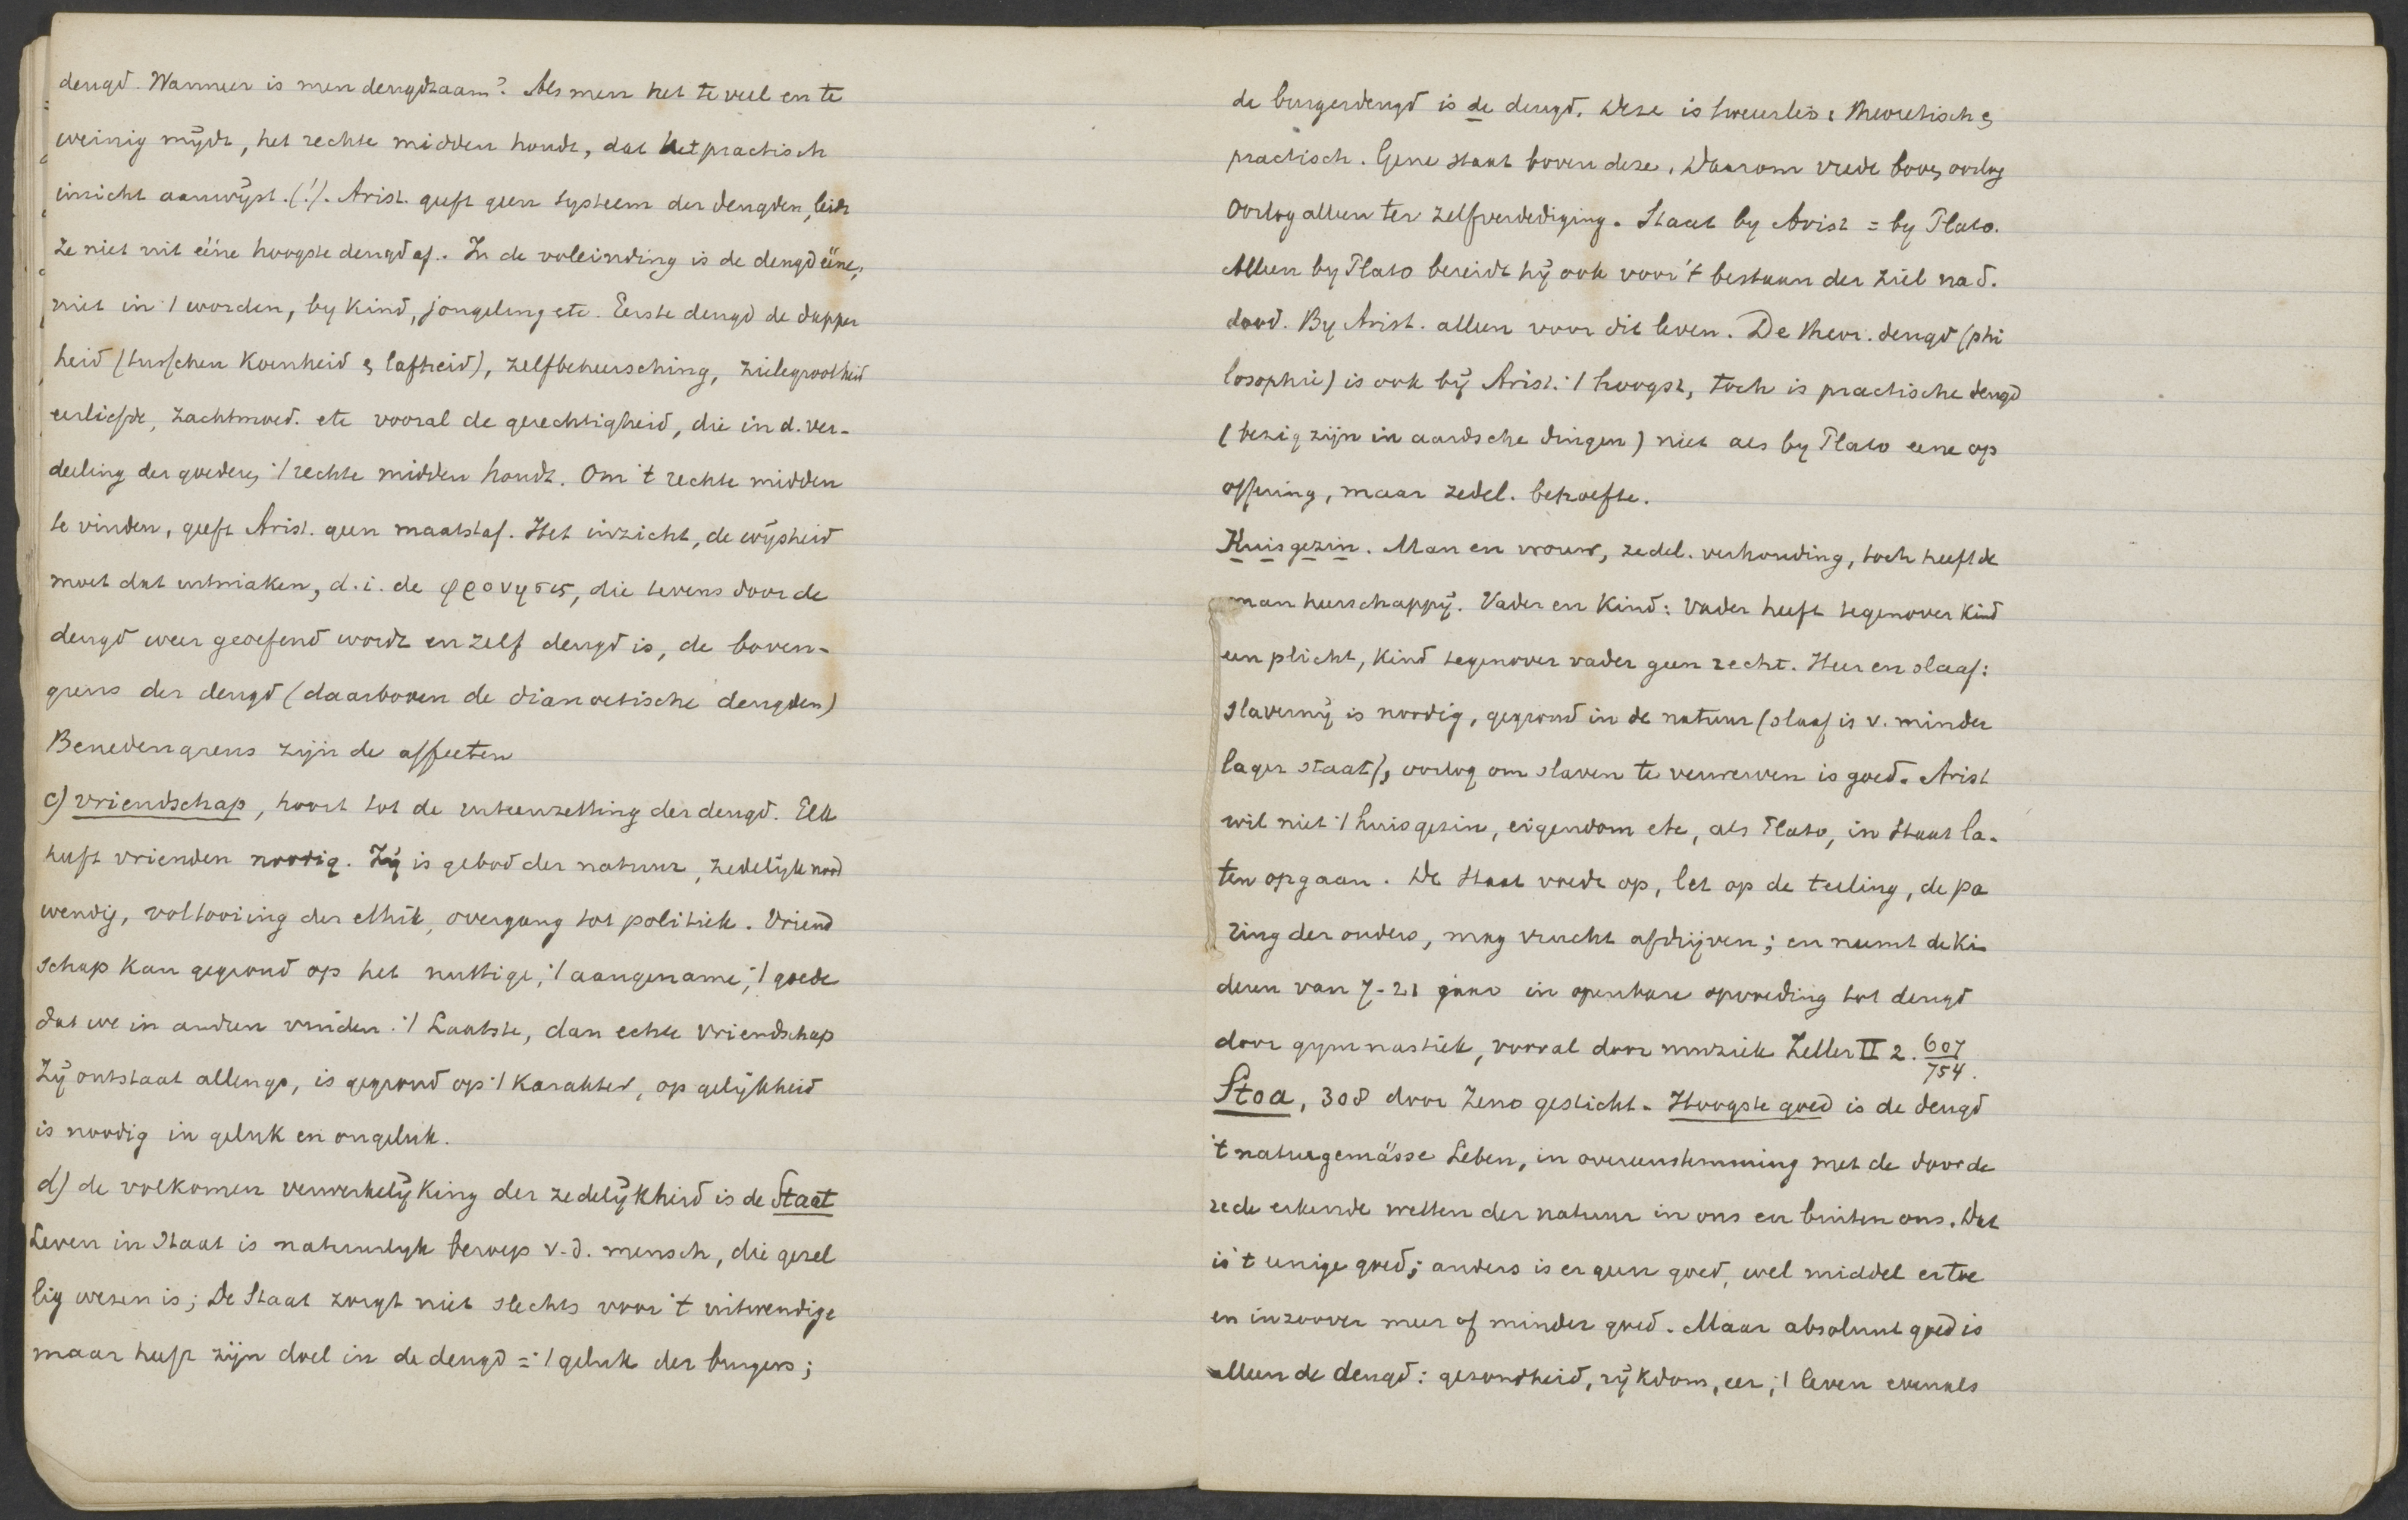 deugd. Wanneer is men deugdzaam? Als men het te veel en te
weinig mijdt, het rechte midden houdt, dat het practisch
inzicht aanwijst. (!). Arist. geeft geen systeem der deugden, leidt
ze niet uit ééne hoogste deugd af. In de voleinding is de deugd ééne,
niet in 't worden, by kind, jongeling etc. Eerste deugd de dapper
heid (tusschen koenheid & lafheid), zelfbeheersching, zielegrootheid
eerliefde, zachtmoed. etc vooral de gerechtigheid, die in d. ver-
deeling der goederen 't rechte midden houdt. Om 't rechte midden
te vinden, geeft Arist. geen maatstaf. Het inzicht, de wijsheid
moet dat uitmaken, d.i. de φρονησις, die tevens door de
deugd weer geoefend wordt en zelf deugd is, de boven-
grens der deugd (daarboven de dianoetische deugden)
Benedengrens zijn de affecten
c) vriendschap, hoort tot de uiteenzetting der deugd. Elk
heeft vrienden noodig. Zij is gebod der natuur, zedelijk nood
wendig, voltooiing der ethik, overgang tot politiek. Vriend
schap kan gegrond op het nuttige, 't aangename, 't goede
dat we in anderen vinden. 't Laatste, dan echte vriendschap
Zij ontstaat allengs, is gegrond op 't karakter, op gelijkheid
is noodig in geluk en ongeluk.
d) de volkomen verwerkelijking der zedelijkheid is de Staat
Leven in Staat is natuurlyk beroep v.d. mensch, die gezel
lig wezen is; De Staat zorgt niet slechts voor 't uitwendige
maar heeft zijn doel in de deugd = 't geluk der burgers;
de burgerdeugd is de deugd. Deze is tweeerlei: theoretisch &
practisch. Gene staat boven deze. Daarom vrede boven oorlog
Oorlog alleen ter zelfverdediging. Staat by Arist = by Plato.
Alleen by Plato bereidt hij ook voor 't bestaan der ziel na d.
dood. By Arist. alleen voor dit leven. De theor. deugd (phi
losophie) is ook bij Arist. 't hoogst, toch is practische deugd
(bezig zijn in aardsche dingen) niet als by Plato eene op
offering, maar zedel. behoefte.
Huisgezin. Man en vrouw, zedel. verhouding, toch heeft de
man heerschappij. Vader en Kind: Vader heeft tegenover kind
een plicht, kind tegenover vader geen recht. Heer en slaaf:
slavernij is noodig, gegrond in de natuur (slaaf is v. minder
lager staat), oorlog om slaven te verwerven is goed. Arist
wil niet 't huisgezin, eigendom etc, als Plato, in Staat la-
ten opgaan. De Staat voedt op, let op de teeling, de pa
ring der ouders, mag vrucht afdrijven; en neemt de ki
deren van 7-21 jaar in openbare opvoeding tot deugd
door gymnastiek, vooral door muziek Zeller II 2. 607/754.
Stoa, 308 door Zeno gesticht. Hoogste goed is de deugd
't naturgemässe Leben, in overeenstemming met de door de
rede erkende wetten der natuur in ons en buiten ons. Dat
is 't eenige goed; anders is er geen goed, wel middel ertoe
en inzoover meer of minder goed. Maar absoluut goed is
alleen de deugd: gezondheid, rijkdom, eer, 't leven evenals